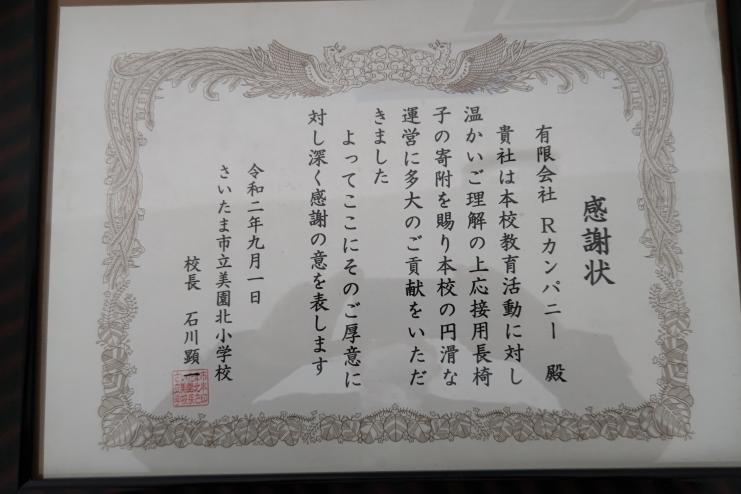 感謝状
有限会社 Rカンパニー 殿
貴社は本校教育活動に対し
温かいご理解の上応接用長椅
子の寄附を賜り本校の円滑な
運営に多大のご貢献をいただ
きました
よってここにそのご厚意に
対し深く感謝の意を表します
令和二年九月一日
さいたま市立美園北小学校
校長 石川顕一